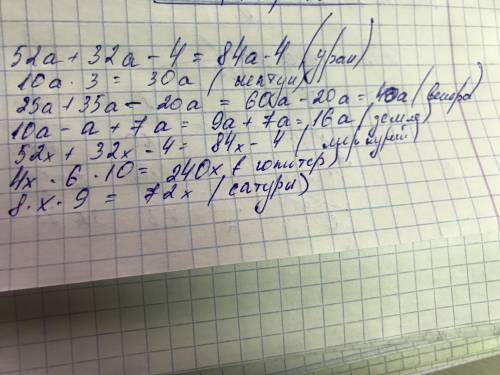 52a + 32a - 4 = 84a - 4 (уран)
10a · 3 = 30a (нептун)
25a + 35a - 20a = 60a - 20a = 40a (венера)
10a - a + 7a = 9a + 7a = 16a (земля)
52x + 32x - 4 = 84x - 4 (меркурий)
4x · 6 · 10 = 240x (юпитер)
8 · x · 9 = 72x (сатурн)